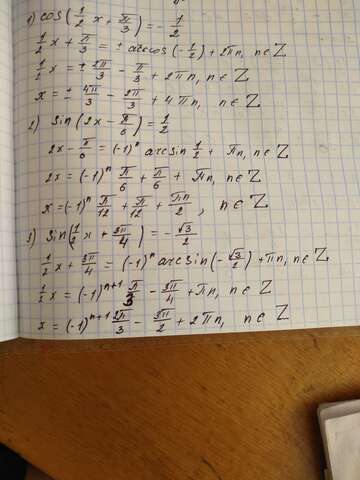 1) cos(1/2 x + π/3) = - 1/2
1/2 x + π/3 = ± arccos(-1/2) + 2πn, n∈Z
1/2 x = ± 2π/3 - π/3 + 2πn, n∈Z
x = ± 4π/3 - 2π/3 + 4πn, n∈Z
2) sin(2x - π/6) = 1/2
2x - π/6 = (-1)ⁿ arcsin 1/2 + πn, n∈Z
2x = (-1)ⁿ π/6 + π/6 + πn, n∈Z
x = (-1)ⁿ π/12 + π/12 + πn/2, n∈Z
3) sin(1/2 x + 3π/4) = - √3/2
1/2 x + 3π/4 = (-1)ⁿ arcsin(-√3/2) + πn, n∈Z
1/2 x = (-1)ⁿ⁺¹ π/3 - 3π/4 + πn, n∈Z
x = (-1)ⁿ⁺¹ 2π/3 - 3π/2 + 2πn, n∈Z